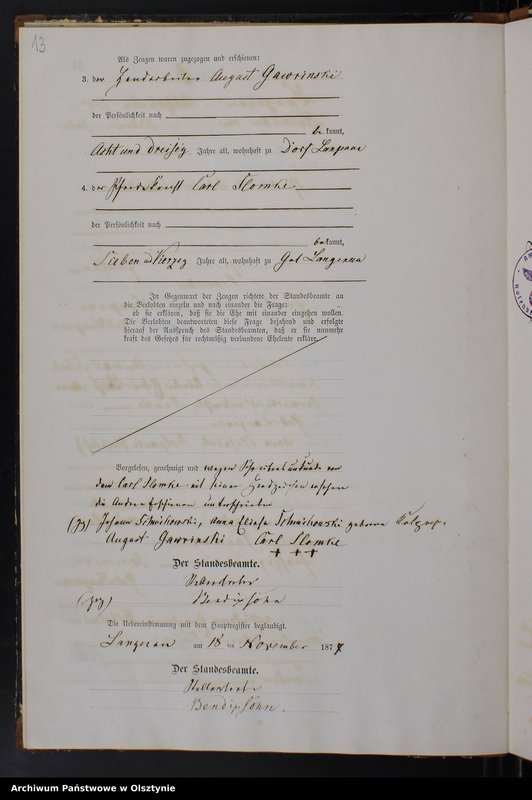 13
Als Zeugen waren zugezogen und erschienen:
3. der August Gawrinski
der Persönlichkeit nach
be kannt,
Acht und dreißig Jahre alt, wohnhaft zu Dorf Langenau
4. der Pferdeknecht Carl Slomke
der Persönlichkeit nach
bekannt,
Sieben und Vierzig Jahre alt, wohnhaft zu Gut Langenau
In Gegenwart der Zeugen richtete der Standesbeamte an
die Verlobten einzeln und nach einander die Frage:
ob sie erklären, daß sie die Ehe mit einander eingehen wollen.
Die Verlobten beantworteten diese Frage bejahend und erfolgte
hierauf der Ausspruch des Standesbeamten, daß er sie nunmehr
kraft des Gesetzes für rechtmäßig verbundene Eheleute erkläre.
Vorgelesen, genehmigt und wegen Schreibensunkunde von
dem Carl Slomke mit seinem Handzeichen versehen
die Anderen Erschienenen unterschrieben
(gz) Johann Schmichowski, Anna Schmichowski geborne
August Gawrinski Carl Slomke
+ + +
Der Standesbeamte.
(gez)
Bendixsohn
Die Uebereinstimmung mit dem Hauptregister beglaubigt.
Langenau am 18 ten November 1877
Der Standesbeamte.
Bendixsohn.
Archiwum Państwowe w Olsztynie